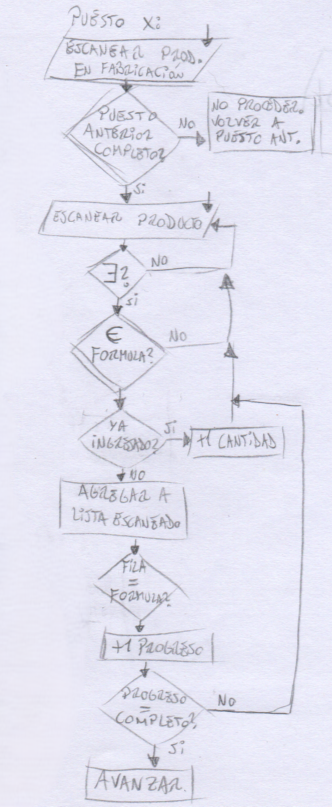 PUESTO X:
ESCANEAR PROD.
EN FABRICACIÓN
PUESTO
ANTERIOR
COMPLETO?
NO
NO PROCEDER.
VOLVER A
PUESTO ANT.
Si
ESCANEAR PRODUCTO
∃?
NO
Si
∈
FORMULA?
NO
YA
INGRESADO?
Si
+1 CANTIDAD
NO
AGREGAR A
LISTA ESCANEADO
FILA
=
FORMULA?
+1 PROGRESO
PROGRESO
=
COMPLETO?
NO
Si
AVANZAR.